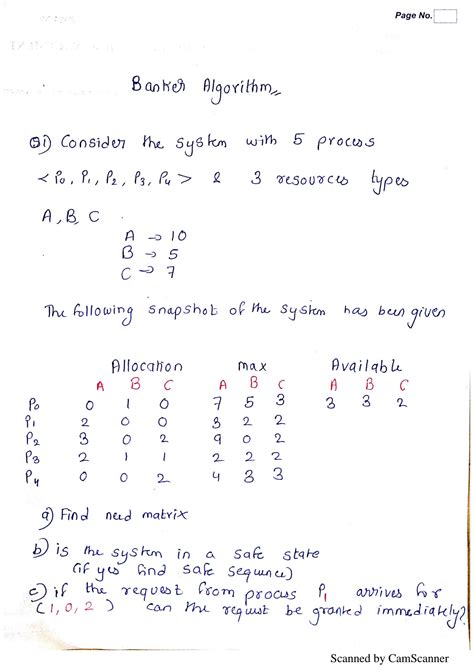 Page No.
Banker Algorithm
Q1) Consider the system with 5 process
<P0, P1, P2, P3, P4> & 3 resources types
A, B, C
A → 10
B → 5
C → 7
The following snapshot of the system has been given
Allocation max Available
A B C A B C A B C
P0 0 1 0 7 5 3 3 3 2
P1 2 0 0 3 2 2
P2 3 0 2 9 0 2
P3 2 1 1 2 2 2
P4 0 0 2 4 3 3
a) Find need matrix
b) is the system in a safe state
(if yes find safe sequence)
c) if the request from process P1 arrives for
(1, 0, 2) can the request be granted immediately?
Scanned by CamScanner